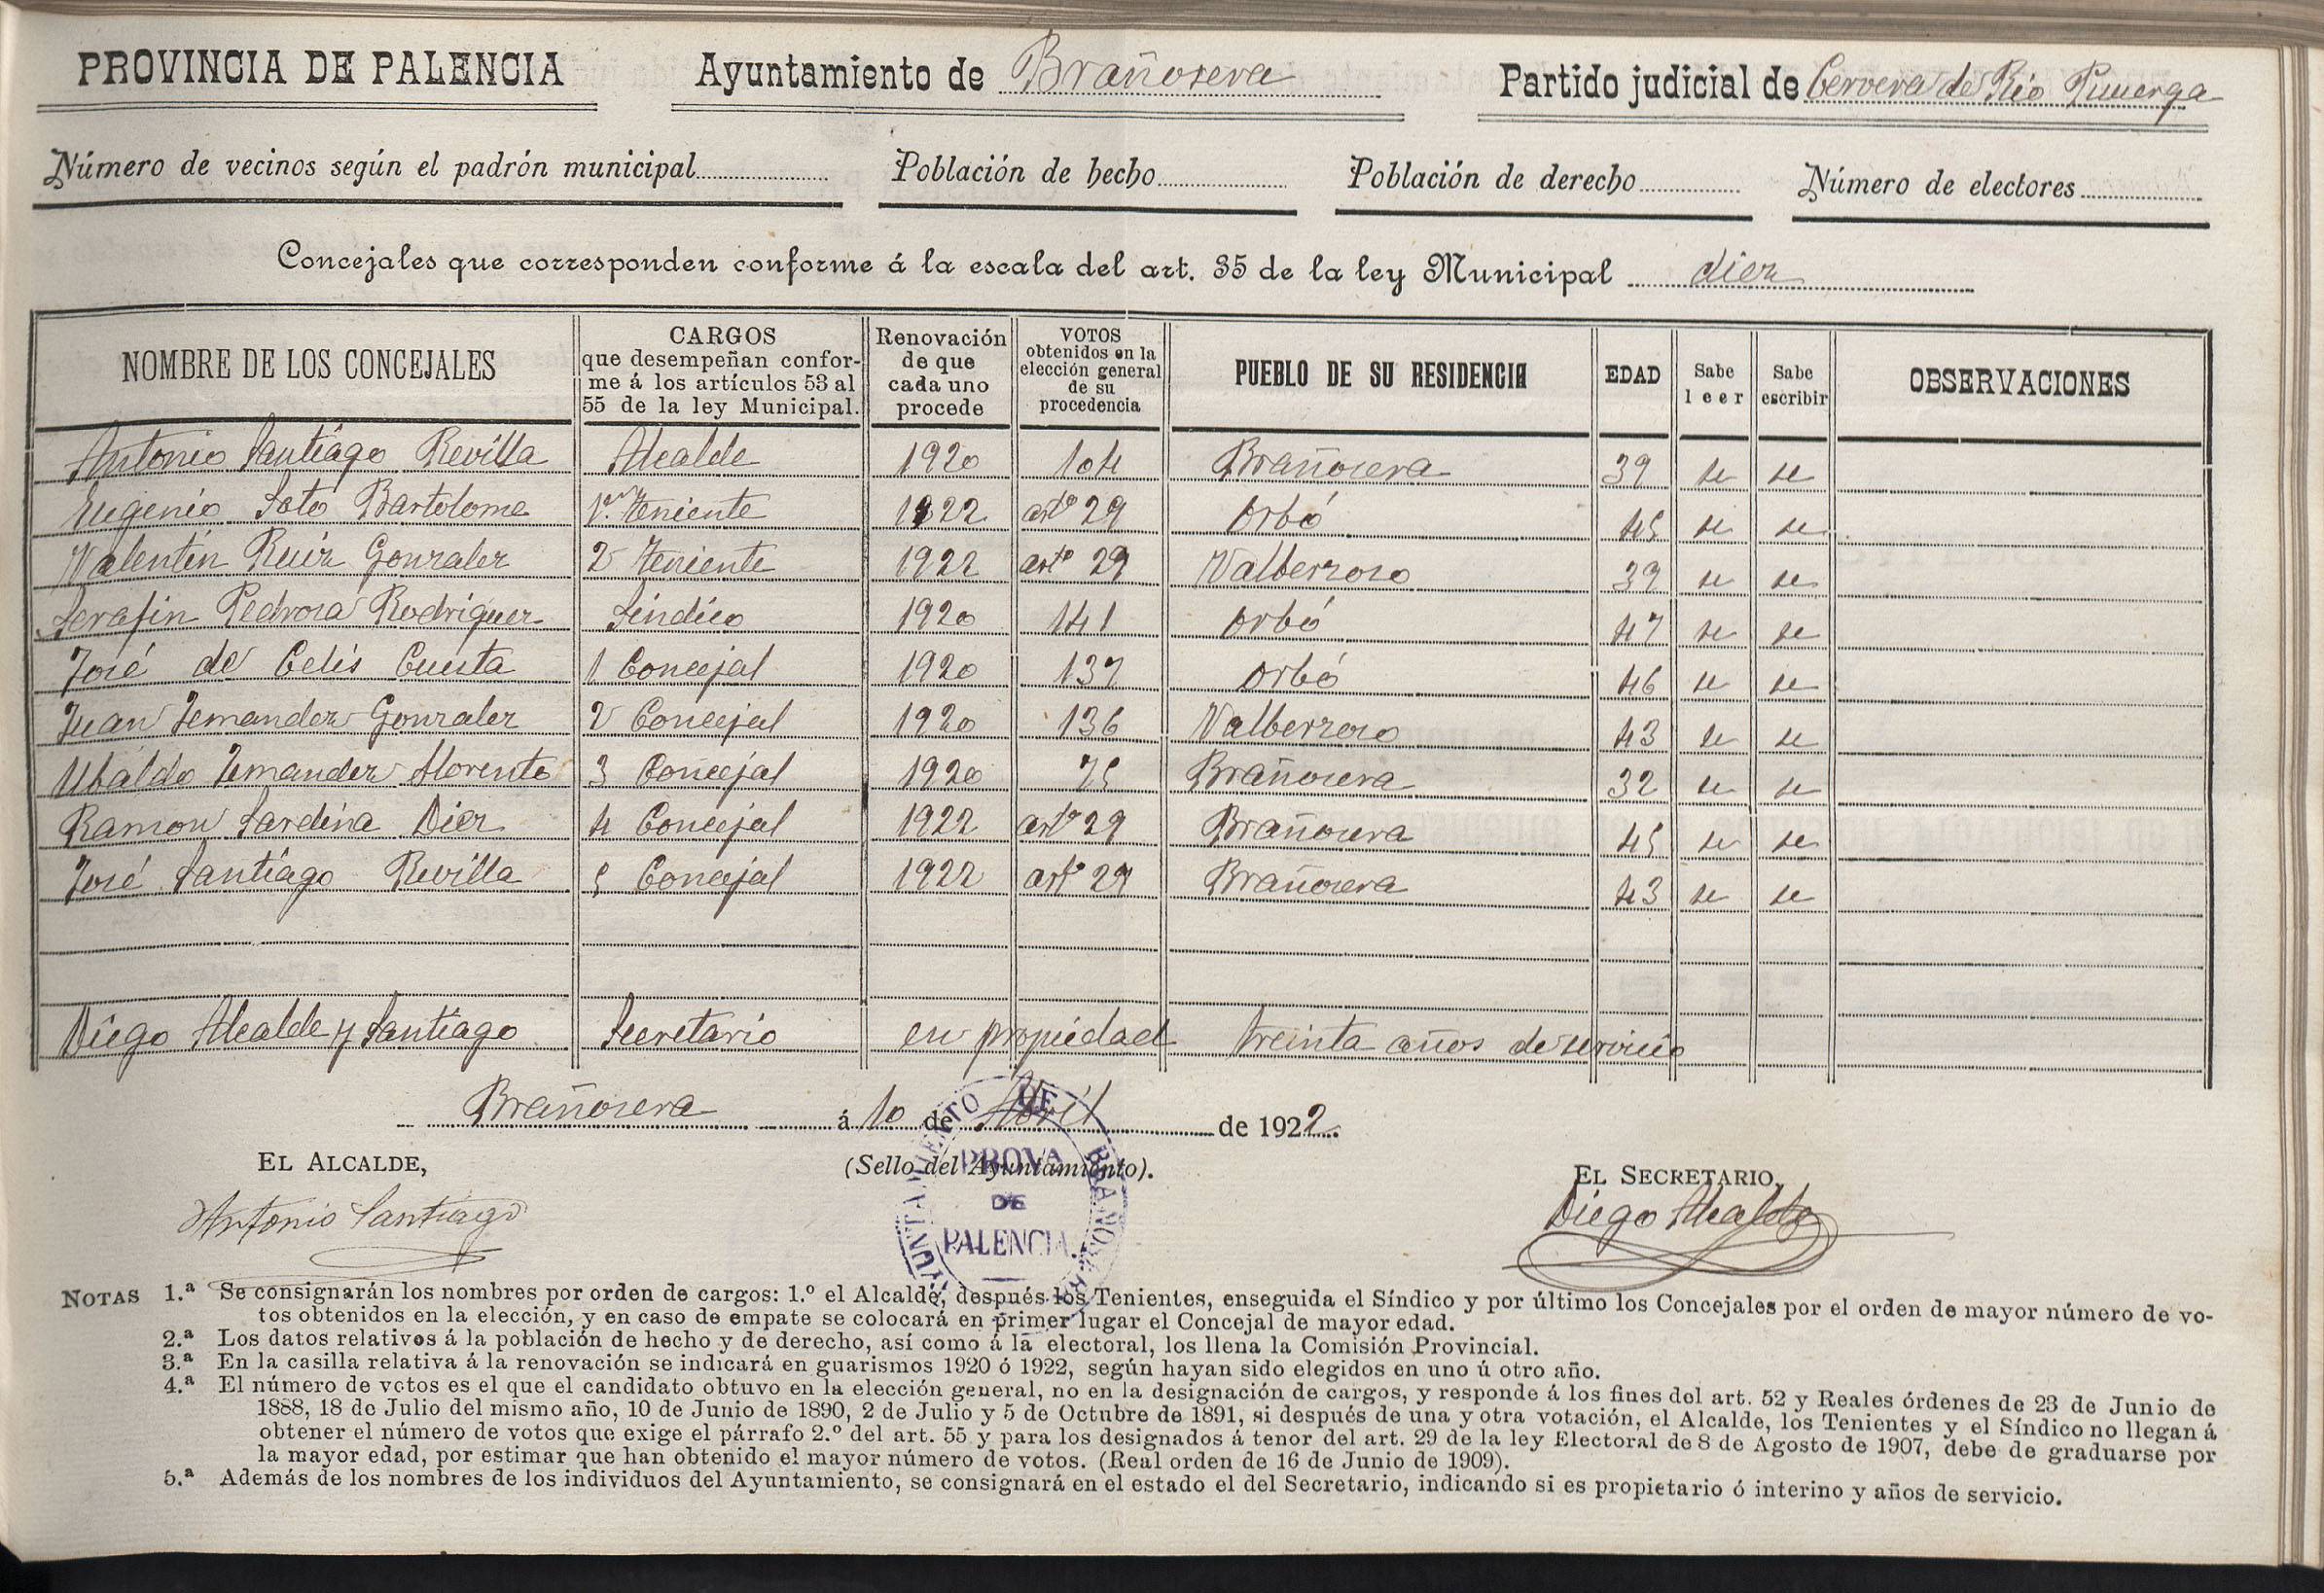 PROVINCIA DE PALENCIA Ayuntamiento de Brañosera Partido judicial de Cervera de Rio Pisuerga
Número de vecinos según el padrón municipal Población de hecho Población de derecho Número de electores
Concejales que corresponden conforme á la escala del art. 35 de la ley Municipal diez
NOMBRE DE LOS CONCEJALES
CARGOS
que desempeñan confor-
me á los artículos 53 al
55 de la ley Municipal.
Renovación
de que
cada uno
procede
VOTOS
obtenidos en la
elección general
de su
procedencia
PUEBLO DE SU RESIDENCIA
EDAD
Sabe
leer
Sabe
escribir
OBSERVACIONES
Antonio Santiago Revilla Alcalde 1920 104 Brañosera 39 si si
Eugenio Soto Bartolome 1er Teniente 1922 artº 29 Orbó 45 si si
Valentin Ruiz Gonzalez 2 Teniente 1922 artº 29 Valberzoso 39 si si
Serafin Pedrosa Rodriguez Sindico 1920 141 Orbó 47 si si
José de Celis Cuesta 1 Concejal 1920 137 Orbó 46 si si
Juan Fernandez Gonzalez 2 Concejal 1920 136 Valberzoso 43 si si
Ubaldo Fernandez Llorente 3 Concejal 1920 75 Brañosera 32 si si
Ramon Sardina Diez 4 Concejal 1922 artº 29 Brañosera 45 si si
José Santiago Revilla 5 Concejal 1922 artº 29 Brañosera 43 si si
Diego Alcalde y Santiago Secretario en propiedad treinta años de servicio
Brañosera á 10 de Abril de 1922.
EL ALCALDE,
(Sello del Ayuntamiento).
EL SECRETARIO,
Antonio Santiago
AYUNTAMIENTO DE BRAÑOSERA
PROVA
DE
PALENCIA
Diego Alcalde
NOTAS 1.ª Se consignarán los nombres por orden de cargos: 1.º el Alcalde, después los Tenientes, enseguida el Síndico y por último los Concejales por el orden de mayor número de vo-
tos obtenidos en la elección, y en caso de empate se colocará en primer lugar el Concejal de mayor edad.
2.ª Los datos relativos á la población de hecho y de derecho, así como á la electoral, los llena la Comisión Provincial.
3.ª En la casilla relativa á la renovación se indicará en guarismos 1920 ó 1922, según hayan sido elegidos en uno ú otro año.
4.ª El número de votos es el que el candidato obtuvo en la elección general, no en la designación de cargos, y responde á los fines del art. 52 y Reales órdenes de 23 de Junio de
1888, 18 de Julio del mismo año, 10 de Junio de 1890, 2 de Julio y 5 de Octubre de 1891, si después de una y otra votación, el Alcalde, los Tenientes y el Síndico no llegan á
obtener el número de votos que exige el párrafo 2.º del art. 55 y para los designados á tenor del art. 29 de la ley Electoral de 8 de Agosto de 1907, debe de graduarse por
la mayor edad, por estimar que han obtenido el mayor número de votos. (Real orden de 16 de Junio de 1909).
5.ª Además de los nombres de los individuos del Ayuntamiento, se consignará en el estado el del Secretario, indicando si es propietario ó interino y años de servicio.